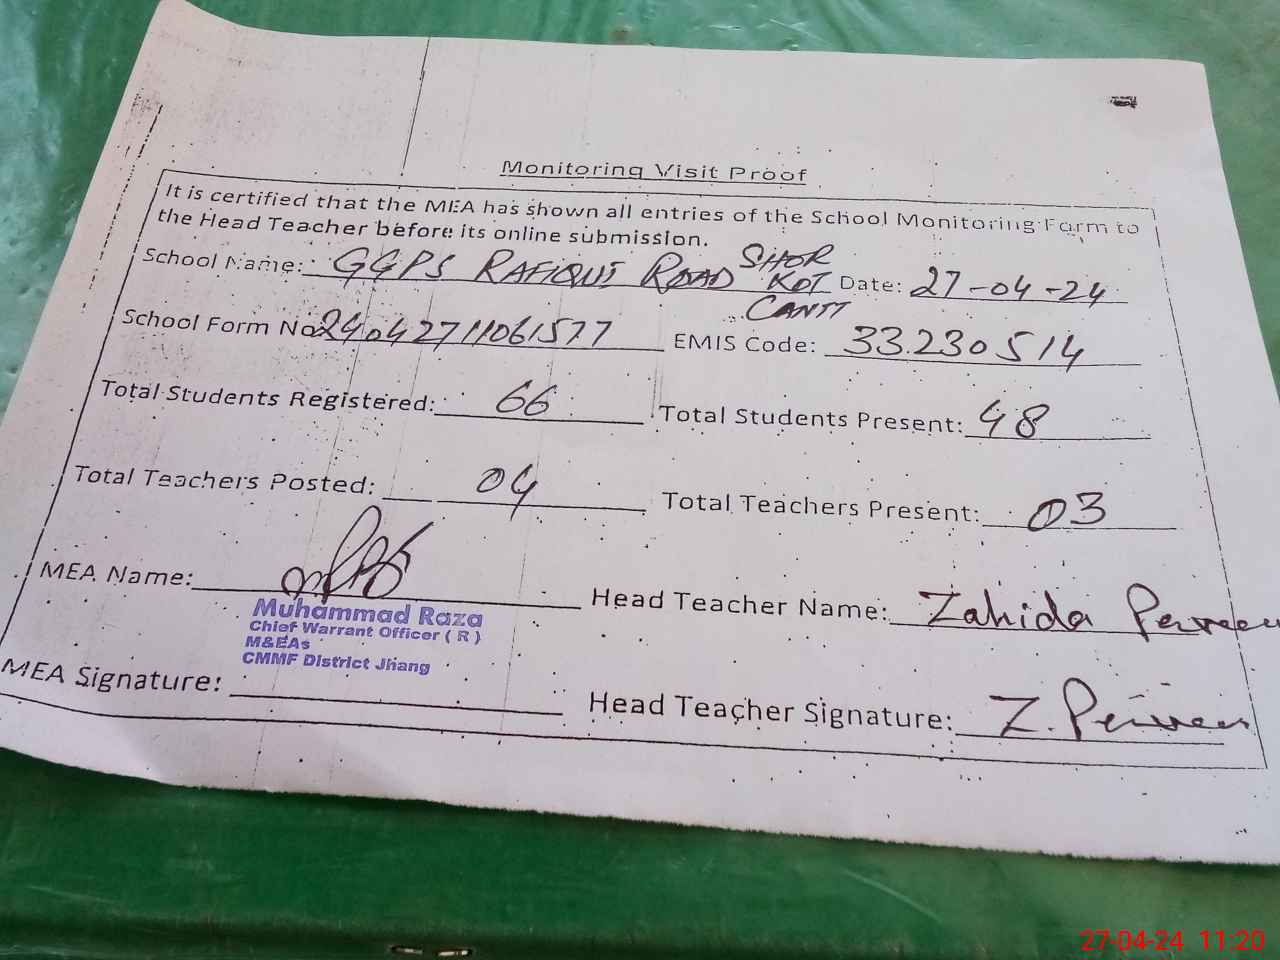 Monitoring Visit Proof
It is certified that the MEA has shown all entries of the School Monitoring Form to
the Head Teacher before its online submission.
School Name: GGPS RAFIQUI ROAD SHOR KOT CANTT Date: 27-04-24
School Form No 24042711061577 EMIS Code: 33230514
Total Students Registered: 66 Total Students Present: 48
Total Teachers Posted: 04 Total Teachers Present: 03
MEA Name: Head Teacher Name: Zahida Perveen
Muhammad Raza
Chief Warrant Officer ( R )
M&EAs
CMMF District Jhang
MEA Signature: Head Teacher Signature: Z. Perveen
27-04-24 11:20